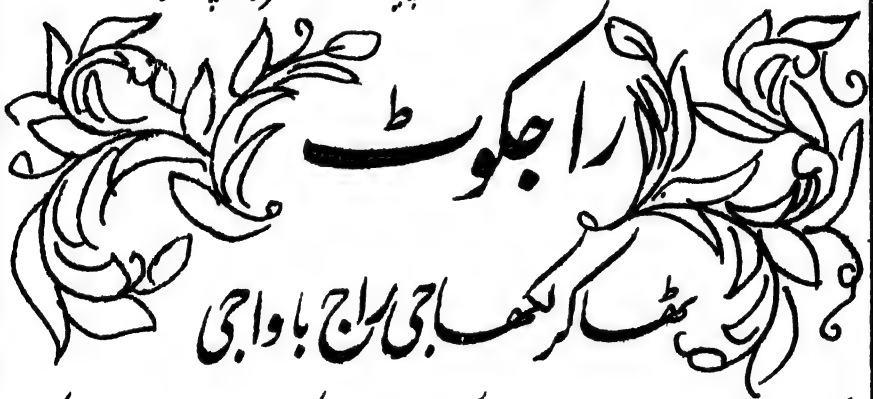 راجکوٹ
ٹھاکر لکھاجی راج باواجی